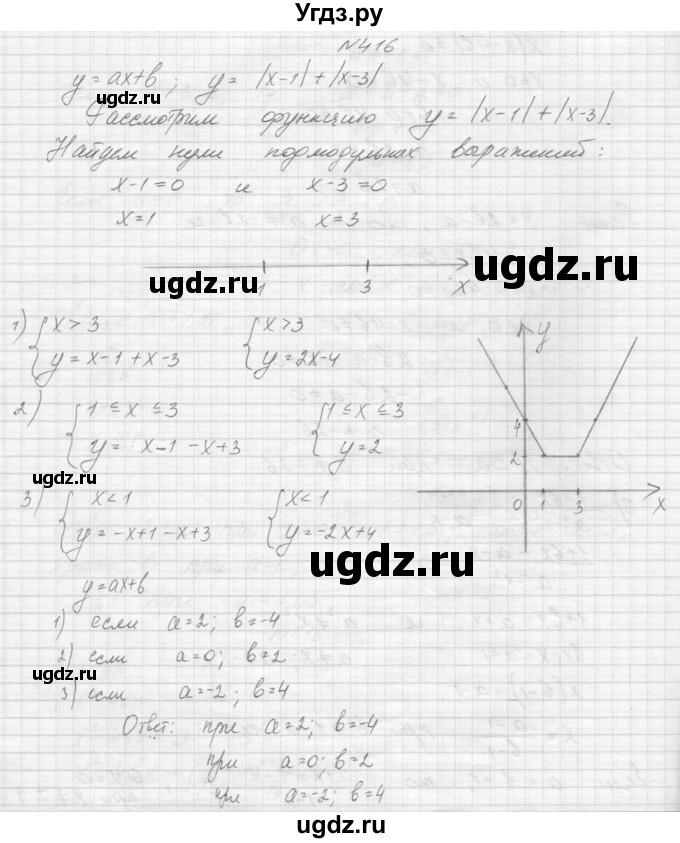 Угдз.ру
№416
y=ax+b; y=|x-1|+|x-3|
ugdz.ru
Рассмотрим функцию y=|x-1|+|x-3|.
Найдем нули подмодульных выражений:
x-1=0 и x-3=0
x=1 x=3
ugdz.ru
1 3 x
ugdz.ru
1) {x>3 {x>3
y=x-1+x-3 y=2x-4
y
2) {1≤x≤3 {1≤x≤3
y= x-1-x+3 y=2
4
2
ugdz.ru
3) {x<1 {x<1
y=-x+1-x+3 y=-2x+4
0 1 3 x
ugdz.ru
y=ax+b
1) если a=2; b=-4
2) если a=0; b=2
ugdz.ru
3) если a=-2; b=4
Ответ: при a=2; b=-4
при a=0; b=2
ugdz.ru
ugdz.ru
при a=-2; b=4
ugdz.ru